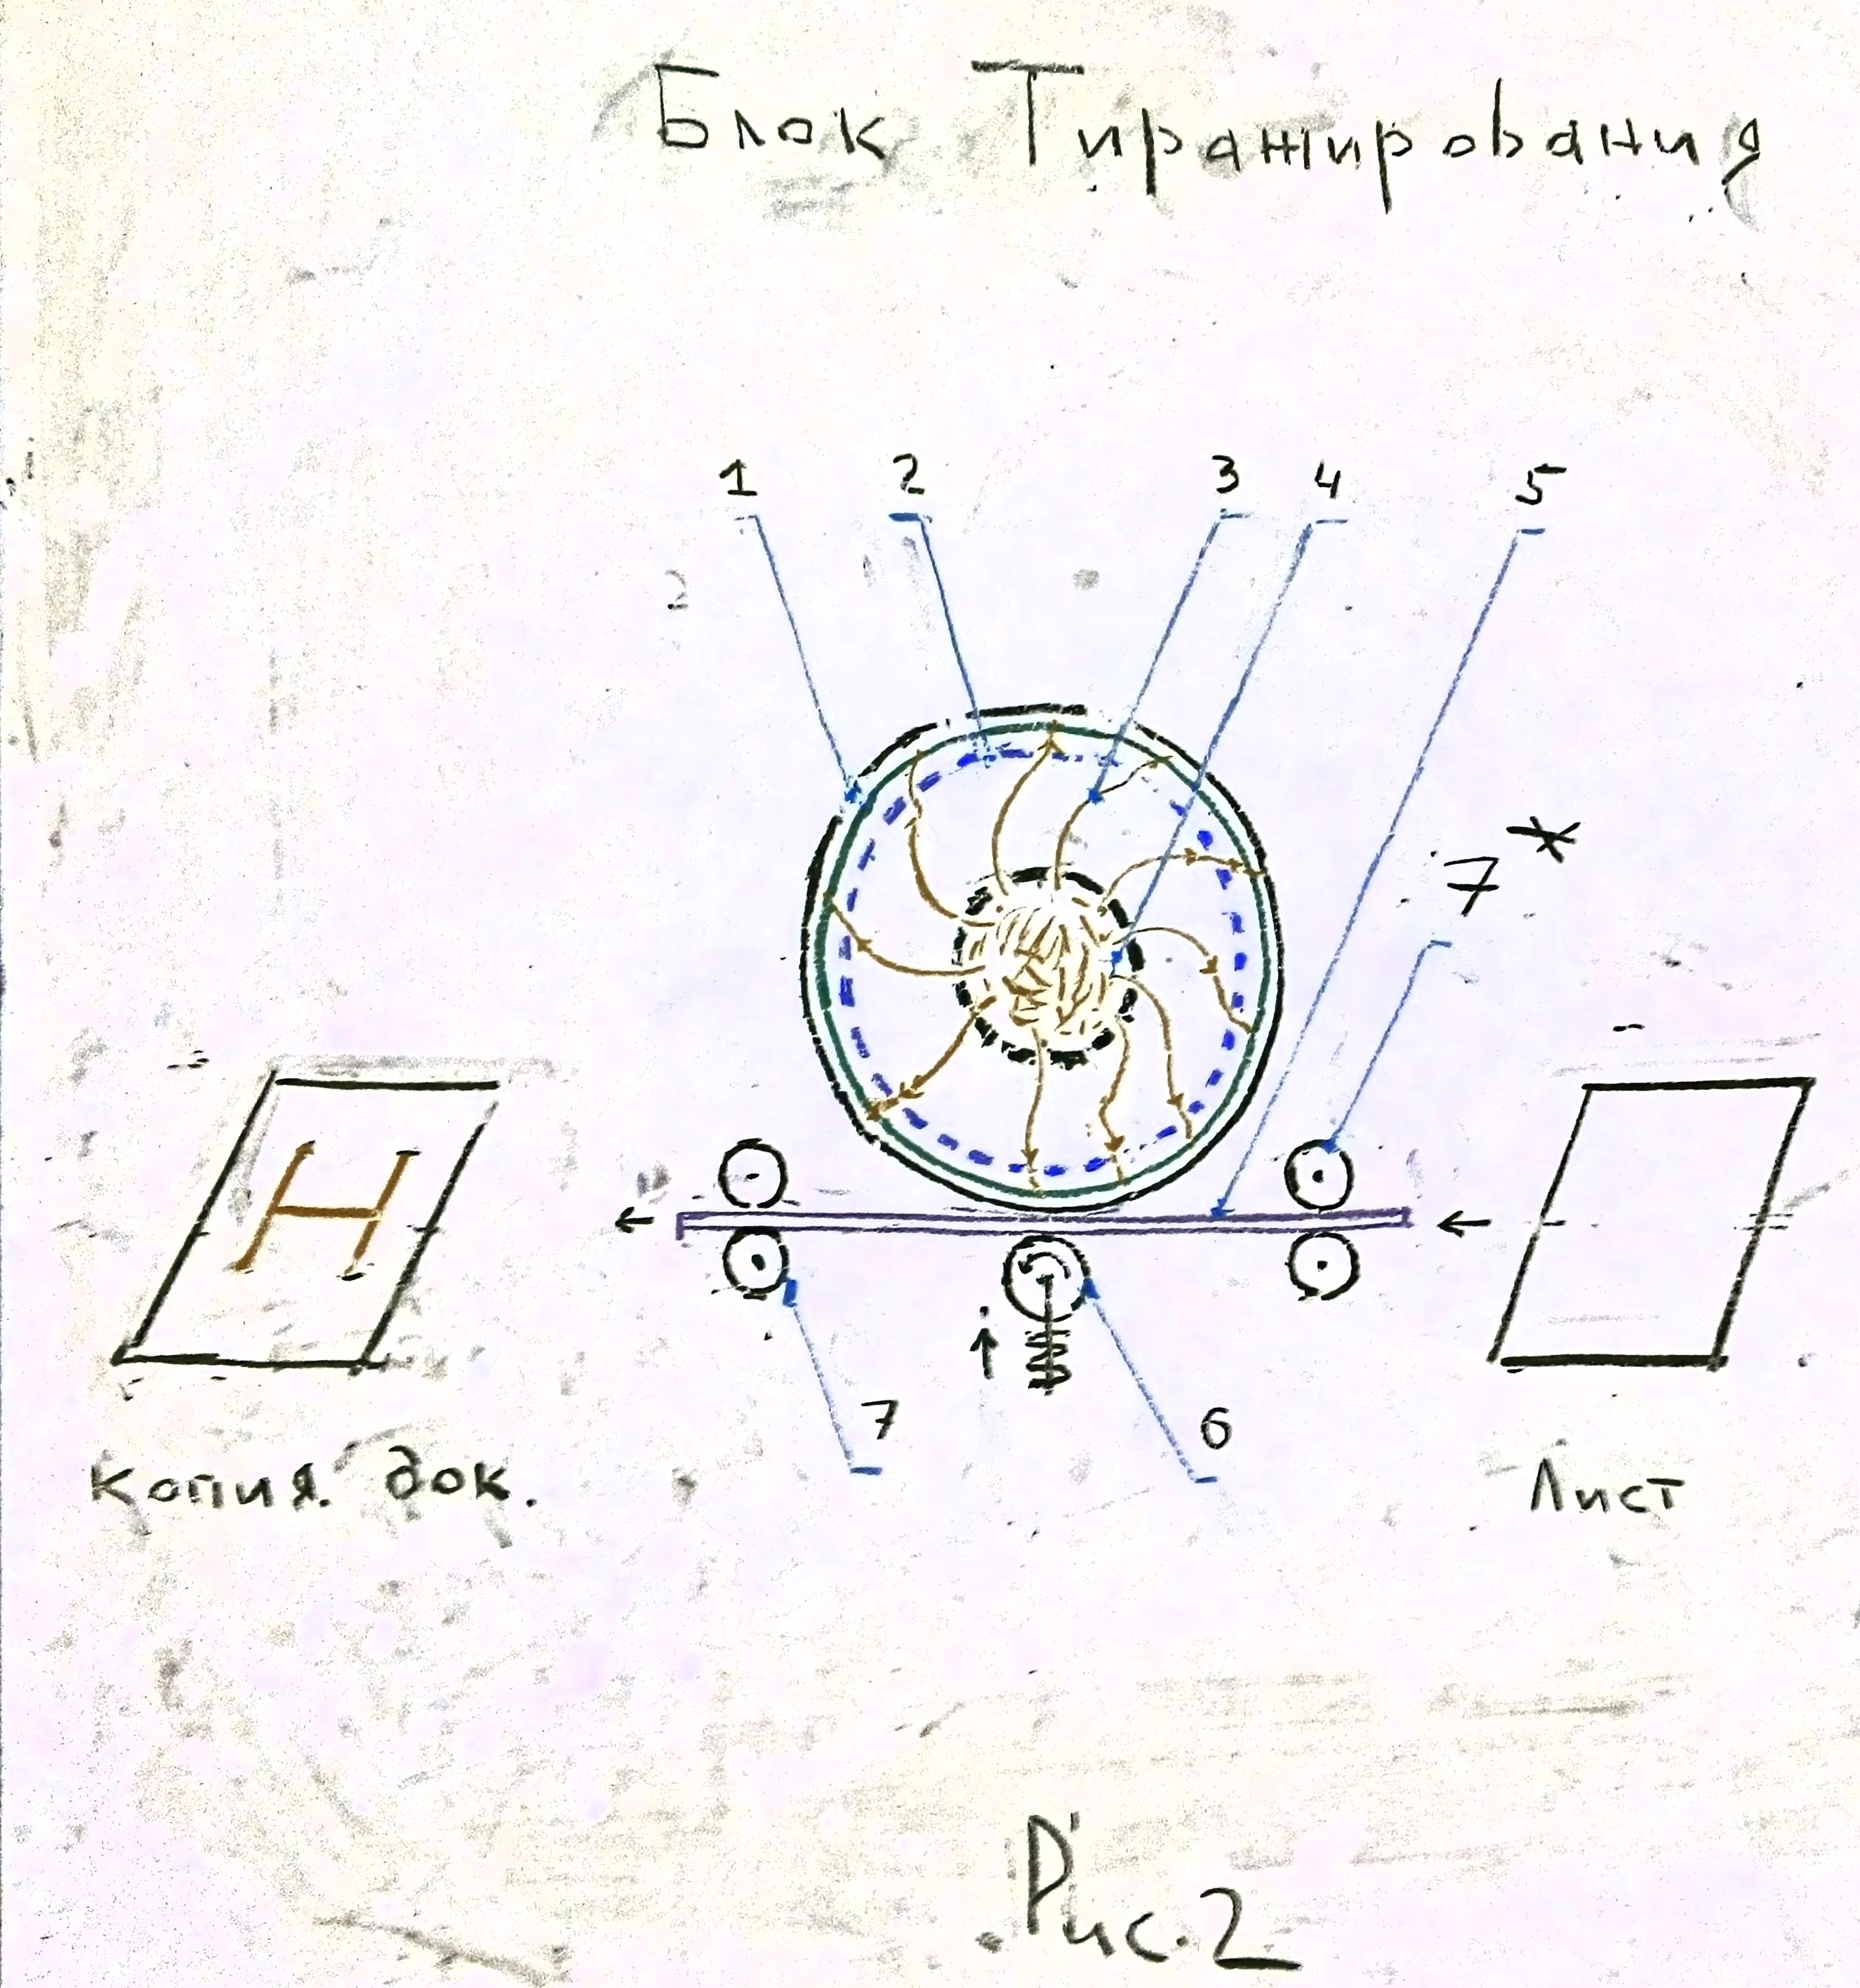 Блок Тиражирования
1 2 3 4 5
2
7*
Н
7 6
копия. док. Лист
Рис.2